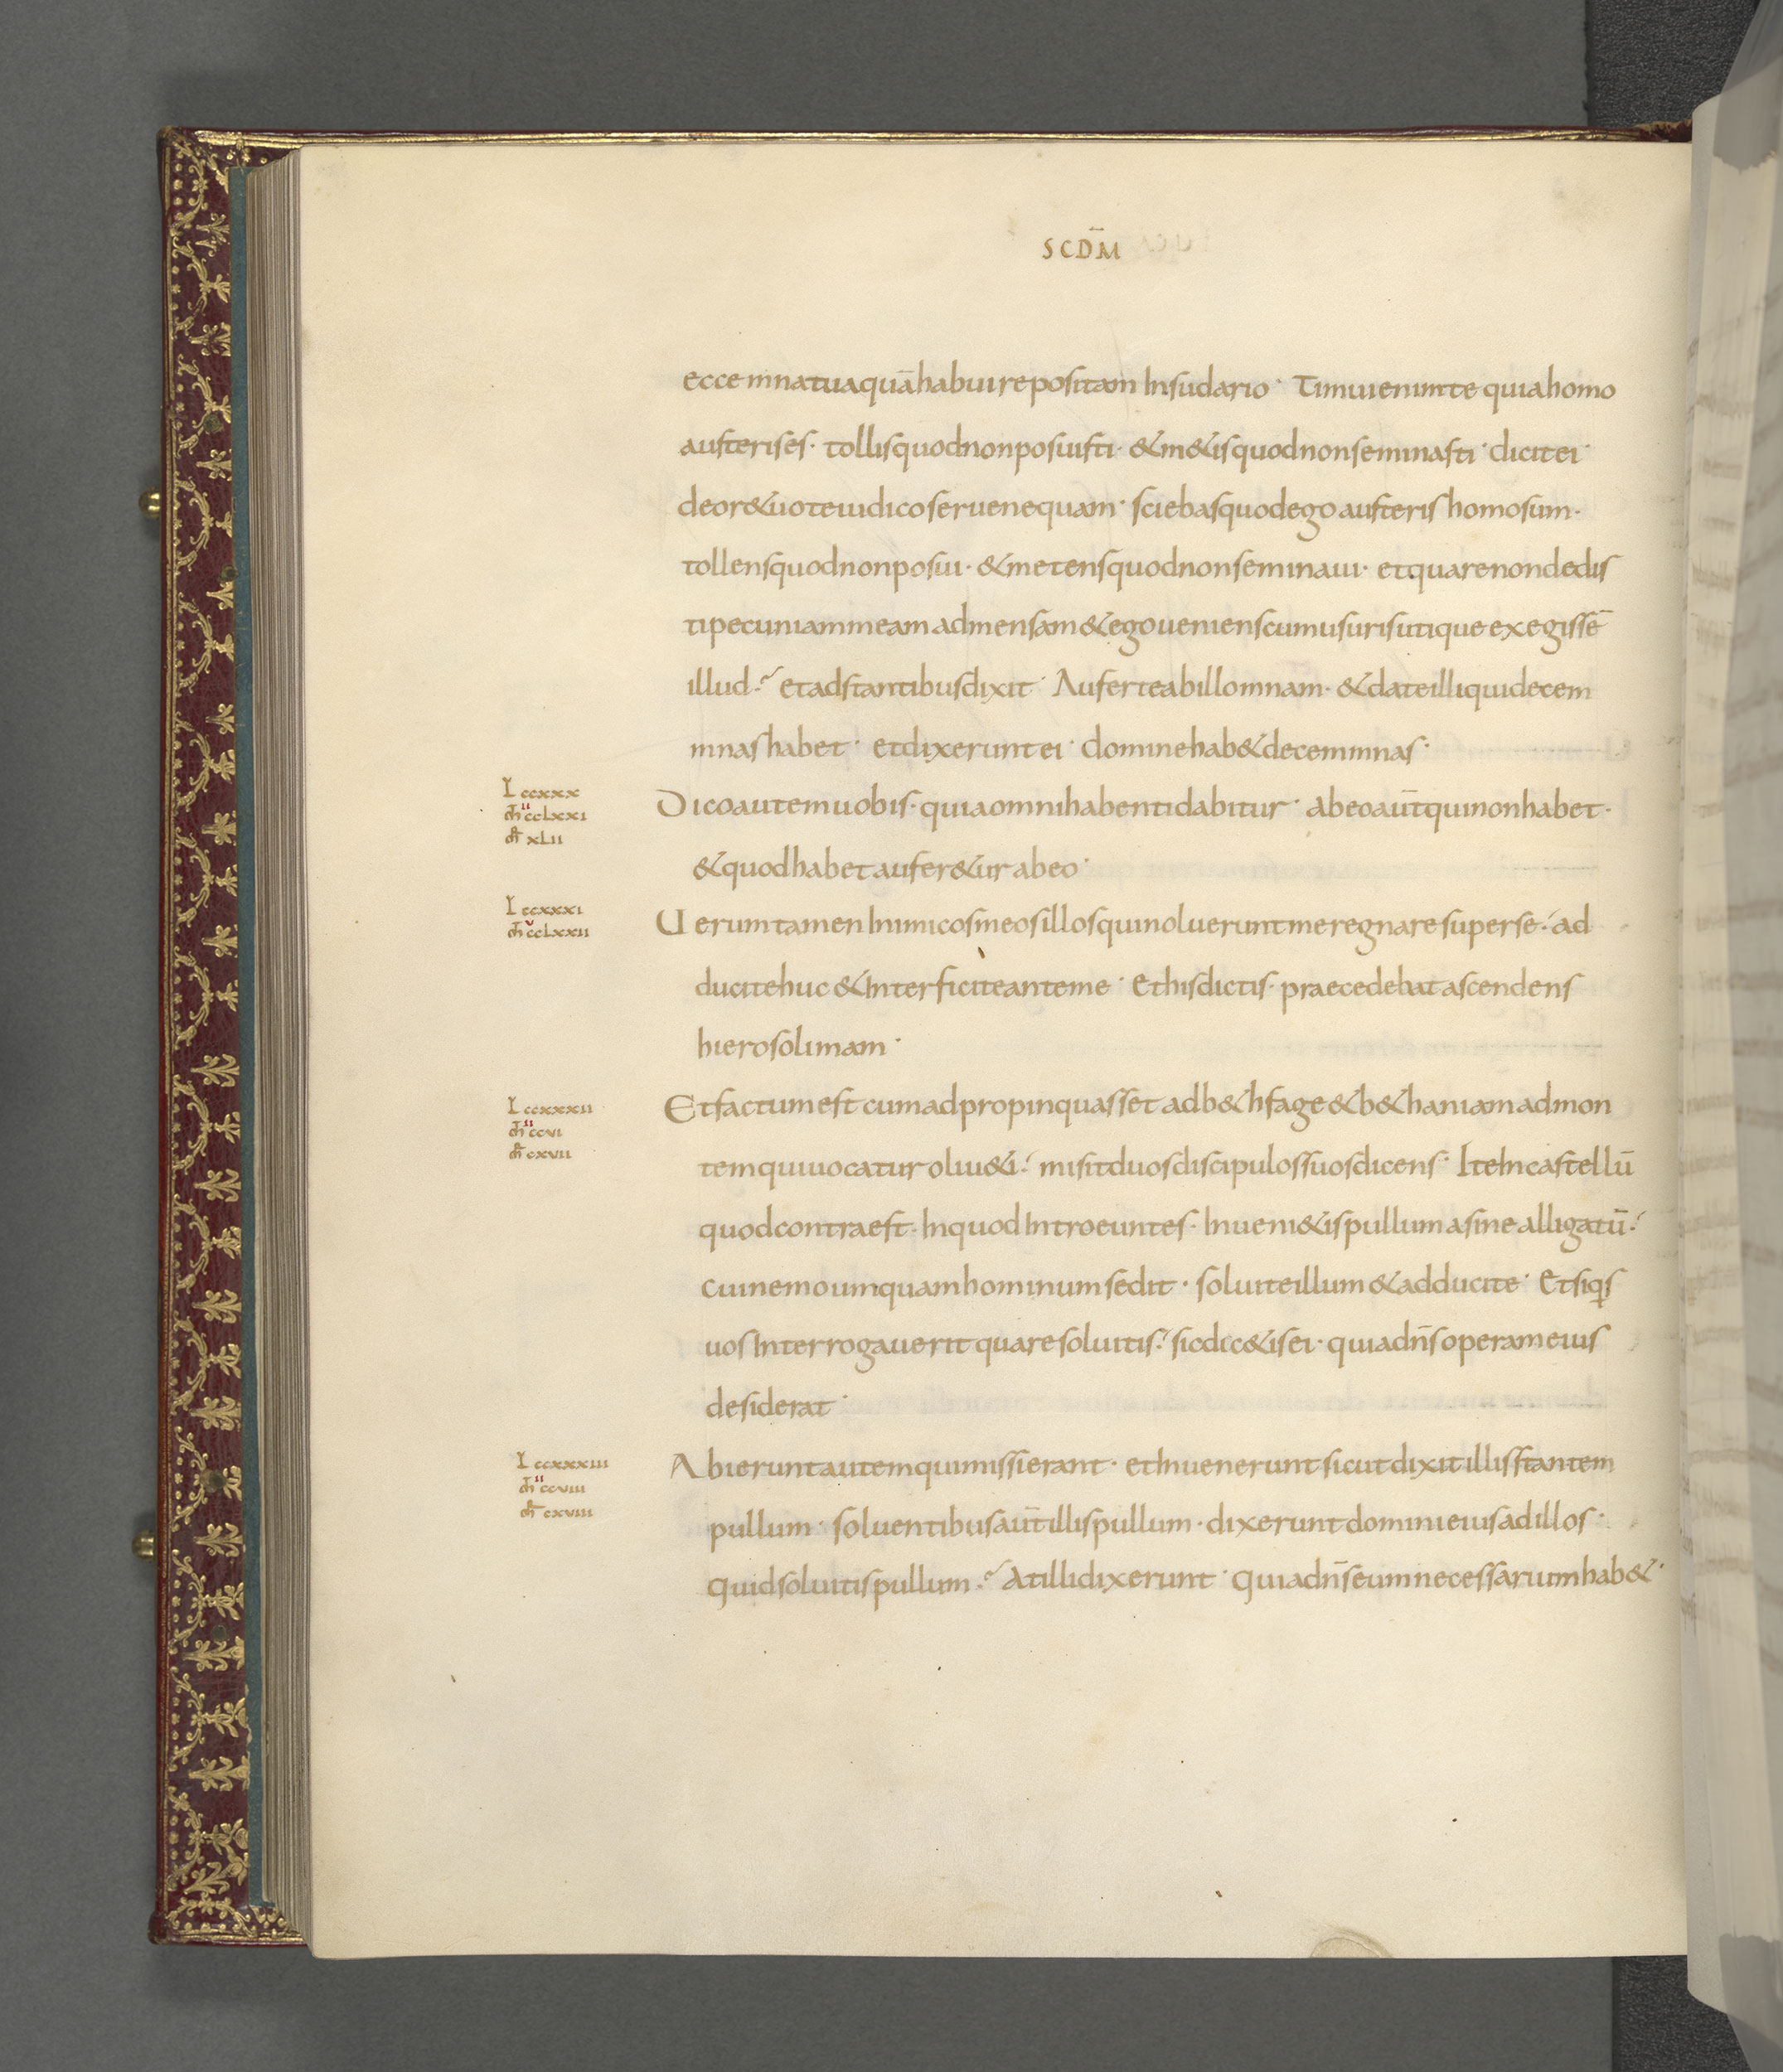 SCDM̄
ecce mna tua quā habui repositam In sudario · Timui enim te quia homo
austeris es · tollis quod non posuisti · & m&is quod non seminasti · dicit ei ·
de or& uo te iudico serue nequam · sciebas quod ego austeris homo sum ·
tollens quod non posui · & metens quod non seminaui · et quare non dedis
ti pecuniam meam ad mensam & ego ueniens cum usuris utique exegissē
illud ? et adstantibus dixit · Auferte ab illo mnam · & date illi qui decem
mnas habet · et dixerunt ei · domine hab& decem mnas ·
L ccxxx
m̄ cclxxi
m̄r xlii
Dico autem uobis · quia omni habenti dabitur · ab eo aūt qui non habet ·
& quod habet aufer&ur ab eo ·
L ccxxxi
m̄ cclxxii
Uerum tamen Inimicos meos illos qui noluerunt me regnare super se · ad
ducite huc & Interficite ante me · Et his dictis · praecedebat ascendens
hierosolimam ·
L ccxxxii
m̄ ccvi
m̄r cxvii
Et factum est cum adpropinquasset ad b&hfage & b&haniam ad mon
tem qui uocatur oliu&i · misit duos discipulos suos dicens · Ite In castellū
quod contra est · In quod Introeuntes · Inueni&is pullum asine alligatū ·
cui nemo umquam hominum sedit · soluite illum & adducite · Et si qis
uos Interrogauerit quare soluitis · sic dic&is ei · quia dn̄s operam eius
desiderat ·
L ccxxxiii
m̄ ccviii
m̄r cxviii
Abierunt autem qui missi erant · et Inuenerunt sicut dixit illis stantem
pullum · soluentibus aūt illis pullum · dixerunt domini eius ad illos ·
Quid soluitis pullum ? At illi dixerunt · Quia dn̄s eum necessarum hab& ·